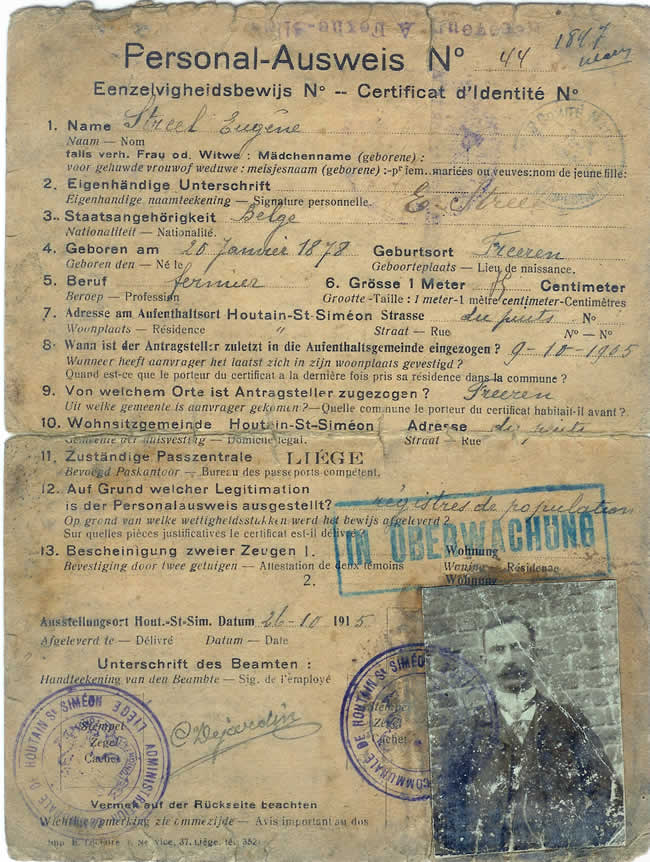 Personal-Ausweis Nº 44
1847
Eenzelvigheidsbewijs Nº -- Certificat d'Identité Nº
1. Name Streel Eugène
Naam — Nom
falls verh. Frau od. Witwe : Mädchenname (geborene) :
voor gehuwde vrouw of weduwe : meisjesnaam (geborene) :-pr lem. mariées ou veuves: nom de jeune fille:
2. Eigenhändige Unterschrift E. Streel
Eigenhandige naamteekening — Signature personnelle.
3. Staatsangehörigkeit Belge
Nationaliteit — Nationalité.
4. Geboren am 20 Janvier 1878 Geburtsort Freeren
Geboren den — Né le Geboorteplaats — Lieu de naissance.
5. Beruf fermier 6. Grösse 1 Meter Centimeter
Beroep — Profession Grootte-Taille : 1 meter-1 mètre centimeter-Centimètres
7. Adresse am Aufenthaltsort Houtain-St-Siméon Strasse du puits Nº
Woonplaats — Résidence " Straat — Rue Nº — Nº
8. Wann ist der Antragsteller zuletzt in die Aufenthaltsgemeinde eingezogen ? 9-10-1905
Wanneer heeft aanvrager het laatst zich in zijn woonplaats gevestigd ?
Quand est-ce que le porteur du certificat a la dernière fois pris sa résidence dans la commune ?
9. Von welchem Orte ist Antragsteller zugezogen ? Freeren
Uit welke gemeente is aanvrager gekomen ?—Quelle commune le porteur du certificat habitait-il avant ?
10. Wohnsitzgemeinde Houtain-St-Siméon Adresse du puits
Gemeente der huisvesting — Domicile légal. Straat — Rue
11. Zuständige Passzentrale LIÉGE
Bevoegd Paskantoor — Bureau des passeports compétent.
12. Auf Grund welcher Legitimation
is der Personalausweis ausgestellt? régistres de population
Op grond van welke wettigheidsstukken werd het bewijs afgeleverd ?
Sur quelles pièces justificatives le certificat est-il délivré
IN ÜBERWACHUNG
13. Bescheinigung zweier Zeugen 1. Wohnung
Bevestiging door twee getuigen — Attestation de deux témoins Woning — Résidence
2. Wohnung
Ausstellungsort Hout.-St-Sim. Datum 26-10 1915
Afgeleverd te — Délivré Datum — Date
Unterschrift des Beamten :
Handteekening van den Beambte — Sig. de l'employé
Stempel
Zegel
Cachet
C Dejardin
Stempel
Zegel
Cachet
HOUTAIN ST SIMÉON LIEGE ADMINISTRATION
COMMUNALE DE HOUTAIN ST SIMÉON
Vermerk auf der Rückseite beachten
Wichtige opmerking zie ommezijde — Avis important au dos